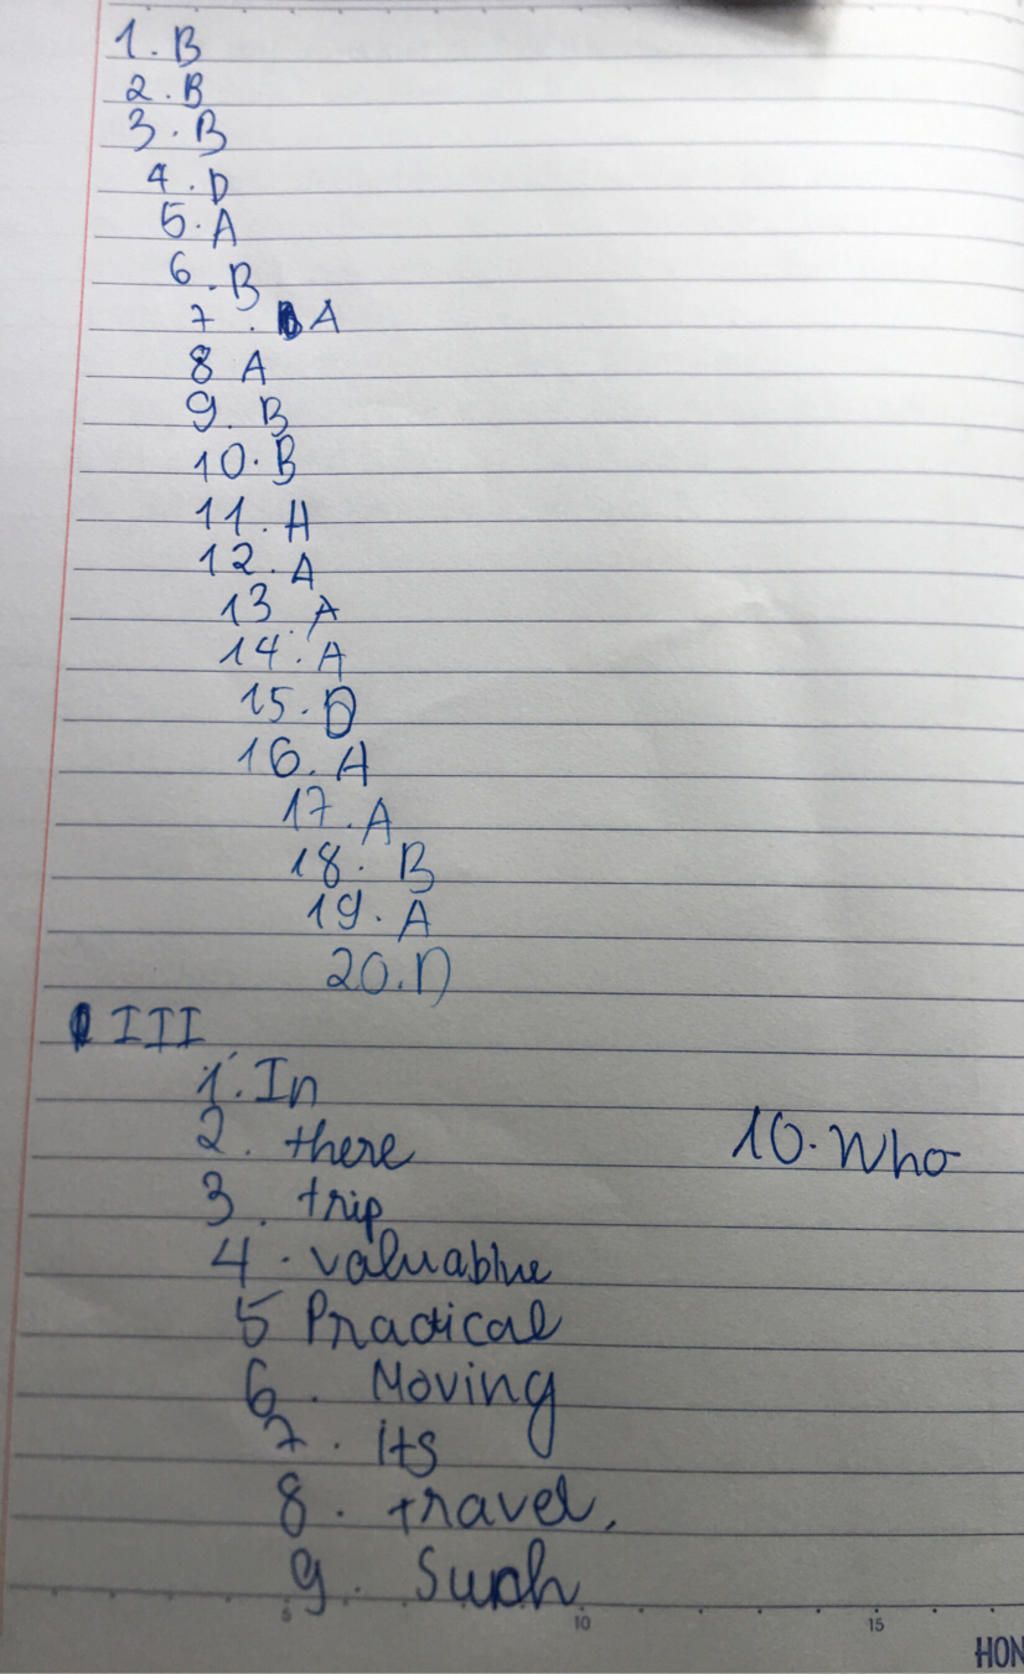 1. B
2. B
3. B
4. D
5. A
6. B
7. A
8 A
9. B
10. B
11. A
12. A
13 A
14. A
15. D
16. A
17. A
18. B
19. A
20. D
III
1. In
2. there
3. trip
10. Who
4. valuablue
5 Practical
6. Moving
7. its
8. travel,
9. Such
5 10 15
HON